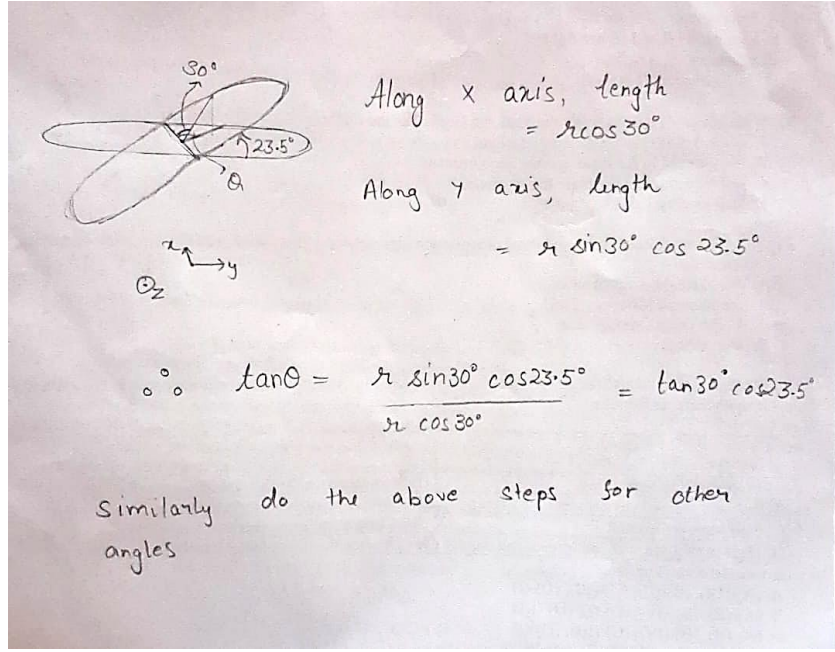 30°
Along x axis, length
= rcos30°
23.5°
Q
Along y axis, length
= r sin30° cos 23.5°
x
y
z
∴ tanθ = r sin30° cos23.5° / r cos30° = tan30° cos23.5°
Similarly do the above steps for other
angles